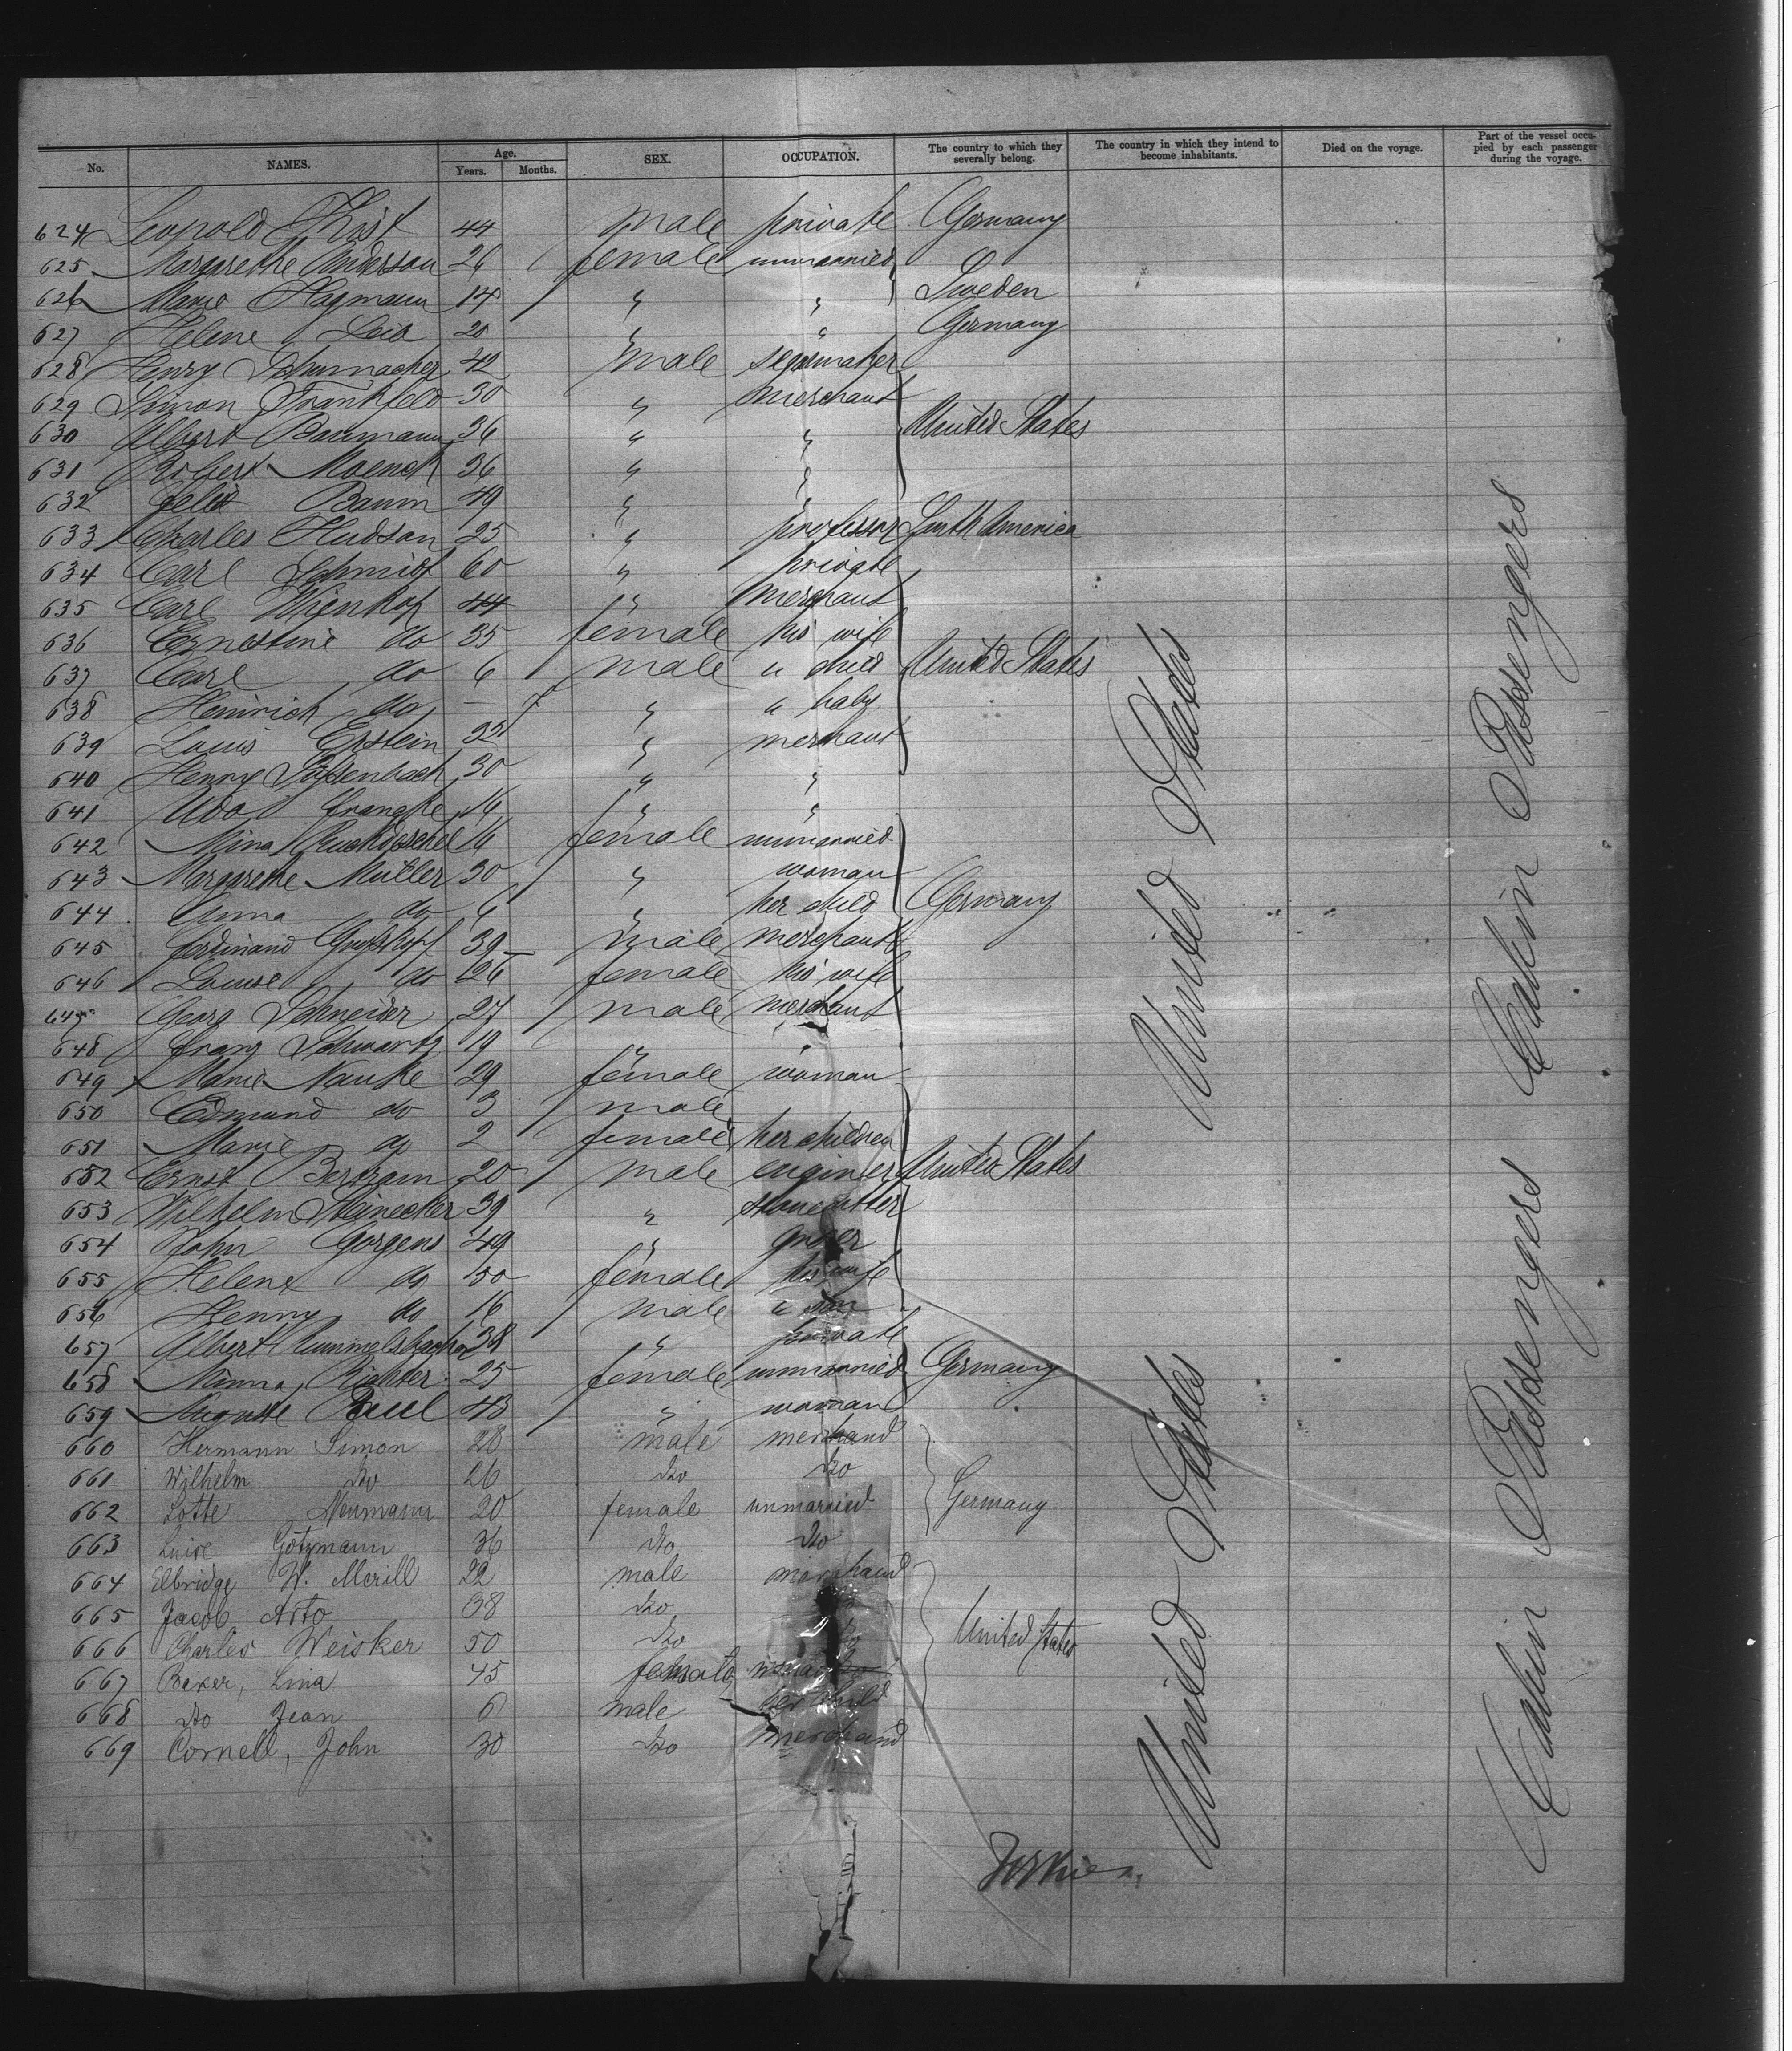 No. NAMES. Age. Years. Months. SEX. OCCUPATION. The country to which they severally belong. The country in which they intend to become inhabitants. Died on the voyage. Part of the vessel occupied by each passenger during the voyage.
624 Leopold 44 male private Germany
625 Margarethe Anderson 26 female unmarried
626 Marie Hagmann 14 " " Sweden
627 Helene 20 " " Germany
628 Henry Schumacher 42 male segarmaker
629 Simon Frankfeld 30 " merchant
630 Albert Baumann 36 " " United States
631 Robert Moench 36 " "
632 Felix Baum 49 " "
633 Charles Hudson 25 " professor South America
634 Carl Schmidt 60 " private
635 Carl Wienhof 44 " merchant
636 Ernestine do 35 female his wife
637 Carl do 6 male " child United States
638 Heinrich do — " " baby
639 Louis Epstein 22 " merchant
640 Henry 30 " "
641 Udo Francke 16 " "
642 Mina Ruckdeschel 16 female unmarried
643 Margarethe Müller 30 " woman
644 Anna do " her child Germany
645 Ferdinand 39 male merchant
646 Louise do 26 female his wife
647 Georg Schneider 27 male merchant
648 Franz Schwartz 19 "
649 Marie Nauke 29 female woman
650 Edmund do 3 male
651 Marie do 2 female her children
652 Ernst Bertram 20 male enginer United States
653 Wilhelm Steinecker 39 " stonecutter
654 John Gorgens 49 " grocer
655 Helene do 50 female his wife
656 Henny do 16 male " son
657 Albert Rummelsbacher 38 " private
658 Minna Richter 25 female unmarried Germany
659 Auguste Paul 43 " woman
660 Hermann Simon 28 male merchand
661 Wilhelm Do 26 Do Do
662 Lotte Neumann 20 female unmarried Germany
663 Luise Götzmann 36 Do Do
664 Elbridge W. Merill 22 male merchand
665 Jacob Arto 38 Do
666 Charles Weisker 50 Do Do United States
667 Beker, Lina 45 female
668 Do Jean 6 male her child
669 Cornell, John 30 Do merchand
United States
United States
Cabin Passengers
Cabin Passengers